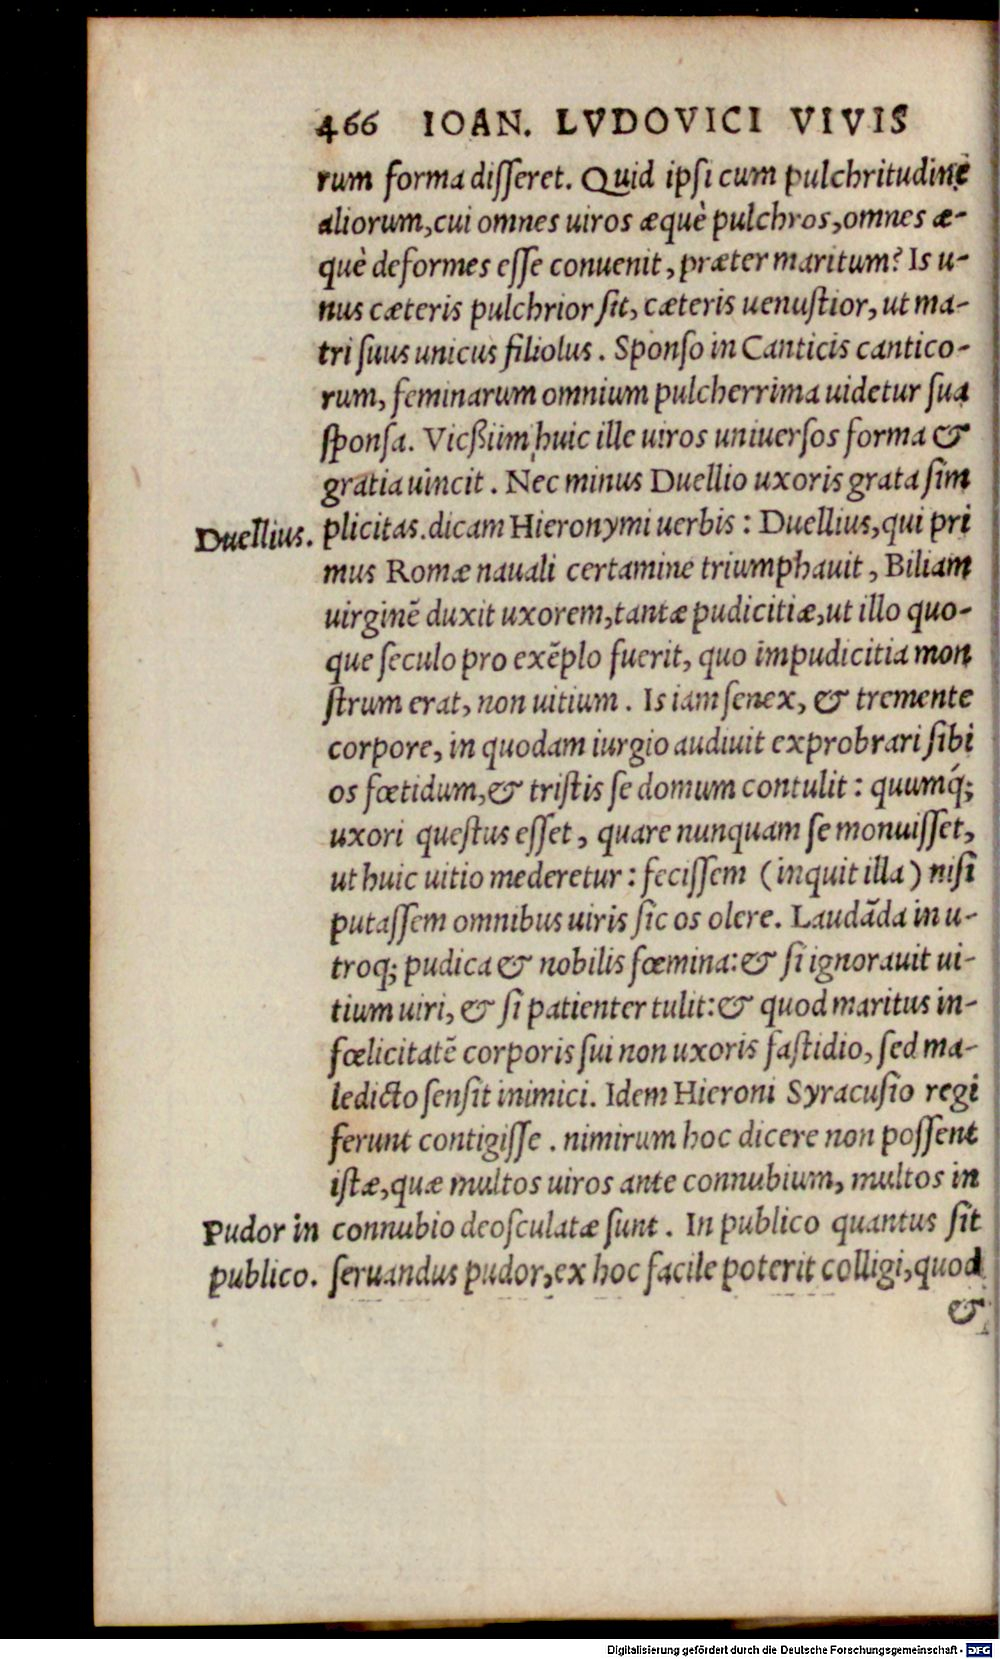 466 IOAN. LVDOVICI VIVIS
rum forma disseret. Quid ipsi cum pulchritudine
aliorum, cui omnes uiros æquè pulchros, omnes æ-
què deformes esse conuenit, præter maritum? Is u-
nus cæteris pulchrior sit, cæteris uenustior, ut ma-
tri suus unicus filiolus. Sponso in Canticis cantico-
rum, feminarum omnium pulcherrima uidetur sua
sponsa. Vicßiim huic ille uiros uniuersos forma &
gratia uincit. Nec minus Duellio uxoris grata sim
Duellius. plicitas. dicam Hieronymi uerbis: Duellius, qui pri
mus Romæ nauali certamine triumphauit, Biliam
uirginẽ duxit uxorem, tantæ pudicitiæ, ut illo quo-
que seculo pro exẽplo fuerit, quo impudicitia mon
strum erat, non uitium. Is iam senex, & tremente
corpore, in quodam iurgio audiuit exprobrari sibi
os fœtidum, & tristis se domum contulit: quumq́;
uxori questus esset, quare nunquam se monuisset,
ut huic uitio mederetur: fecissem (inquit illa) nisi
putassem omnibus uiris sic os olere. Laudãda in u-
troq; pudica & nobilis fœmina: & si ignorauit ui-
tium uiri, & si patienter tulit: & quod maritus in-
fœlicitatẽ corporis sui non uxoris fastidio, sed ma-
ledicto sensit inimici. Idem Hieroni Syracusio regi
ferunt contigisse. nimirum hoc dicere non possent
istæ, quæ multos uiros ante connubium, multos in
Pudor in connubio deosculatæ sunt. In publico quantus sit
publico. seruandus pudor, ex hoc facile poterit colligi, quod
&
Digitalisierung gefördert durch die Deutsche Forschungsgemeinschaft - DFG